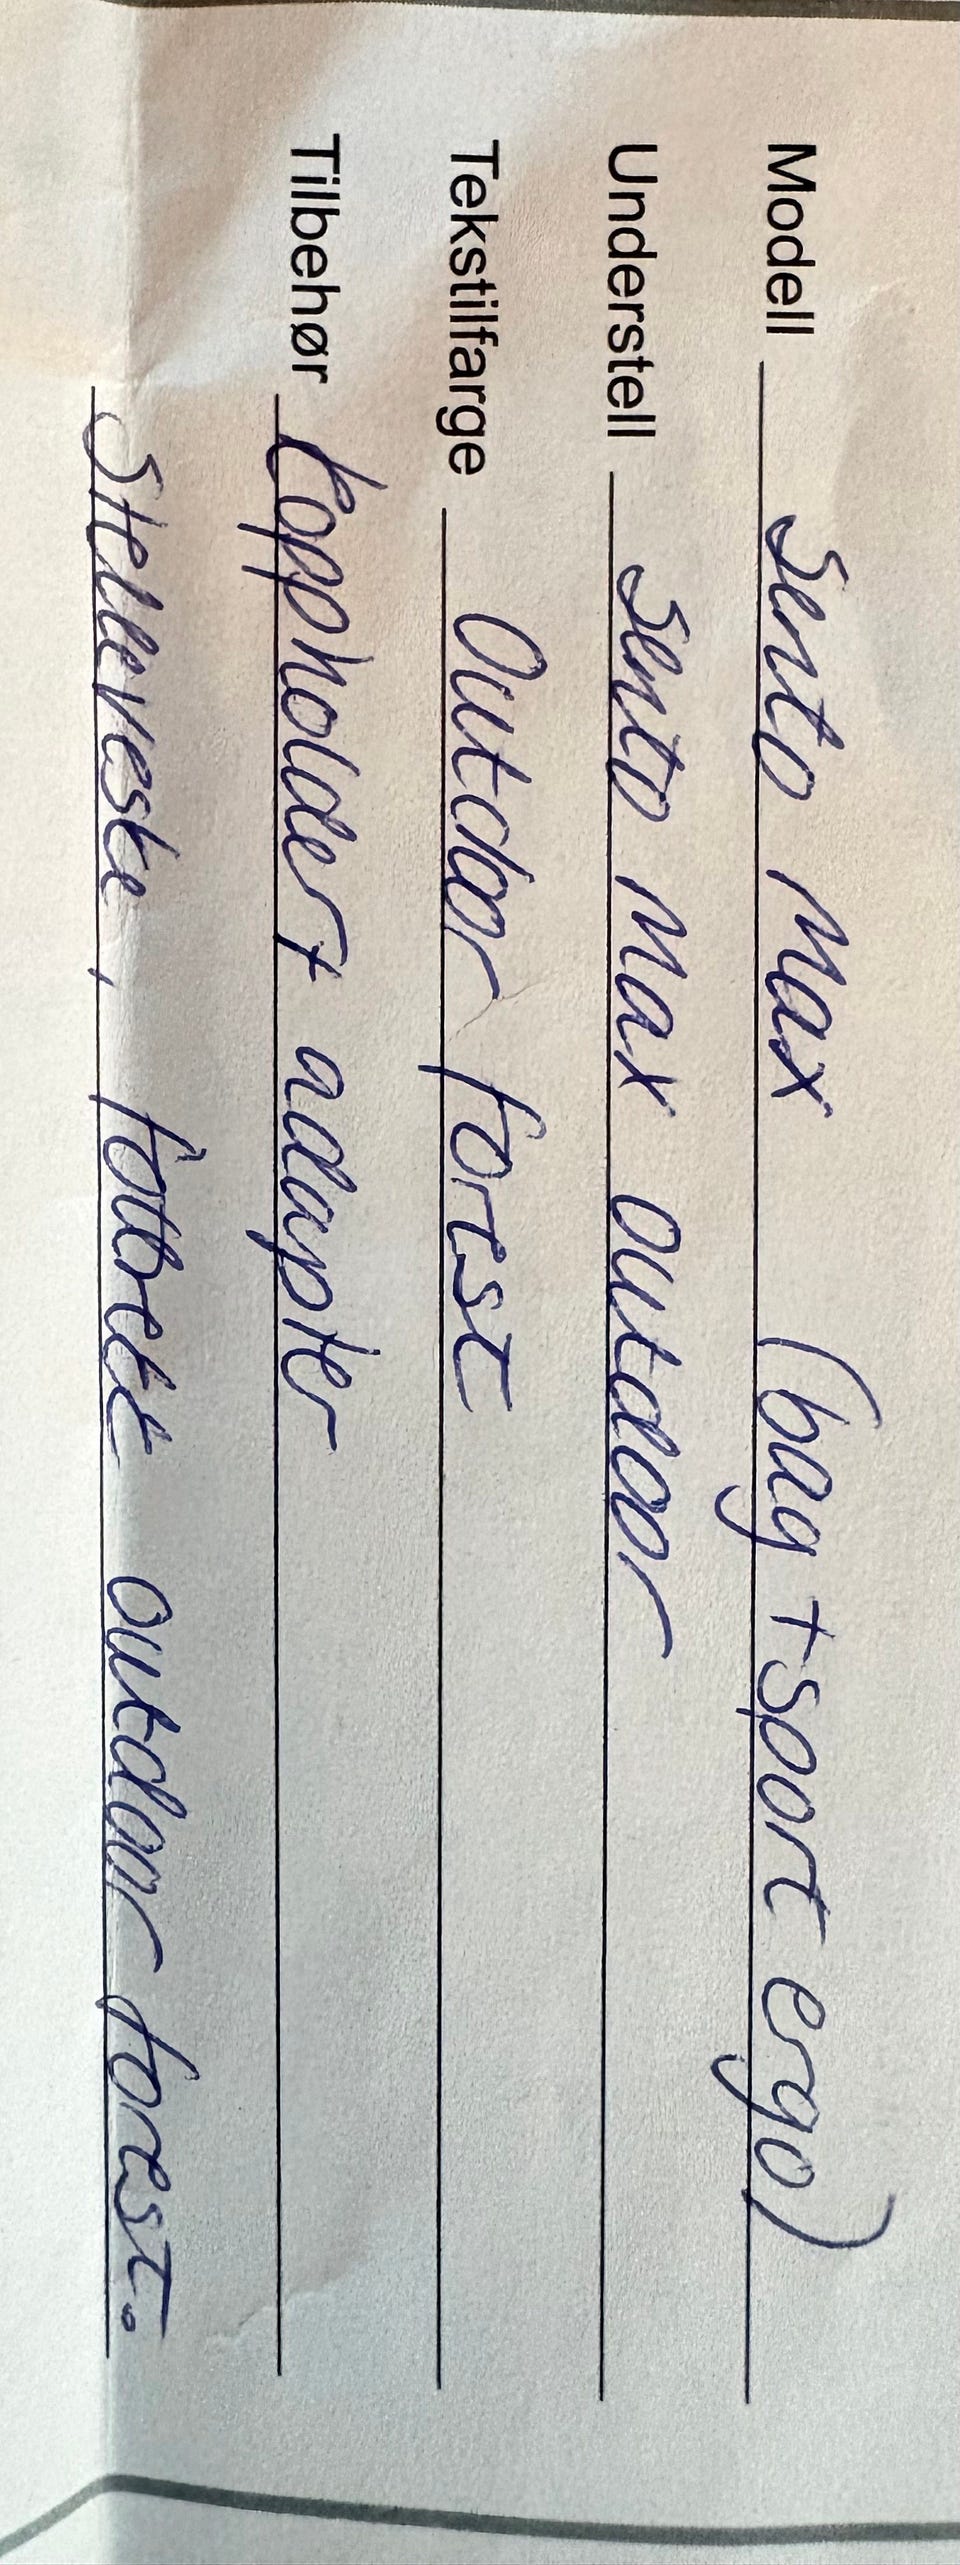 Modell Sento Max (bag + sport ergo)
Understell Sento Max outdoor
Tekstilfarge Outdoor forest
Tilbehør Koppholder + adapter
Stelleveske, fotbrett outdoor forest.